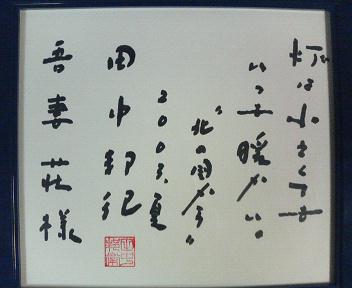 灯は小さくても
いつも暖かい。
"北の国から"
2003,夏
田中邦衛
吾妻荘様